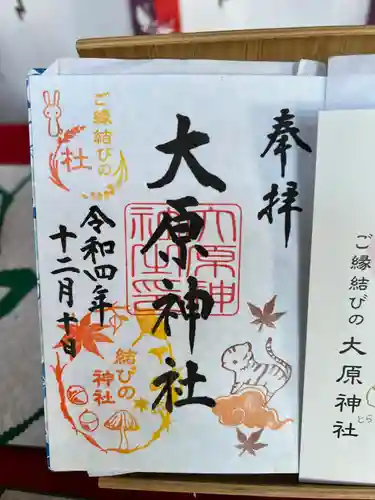 奉拝
大原神社
大原神社之印
ご縁結びの
杜
令和四年
十二月十日
結びの
神社
ご縁結びの 大原神社